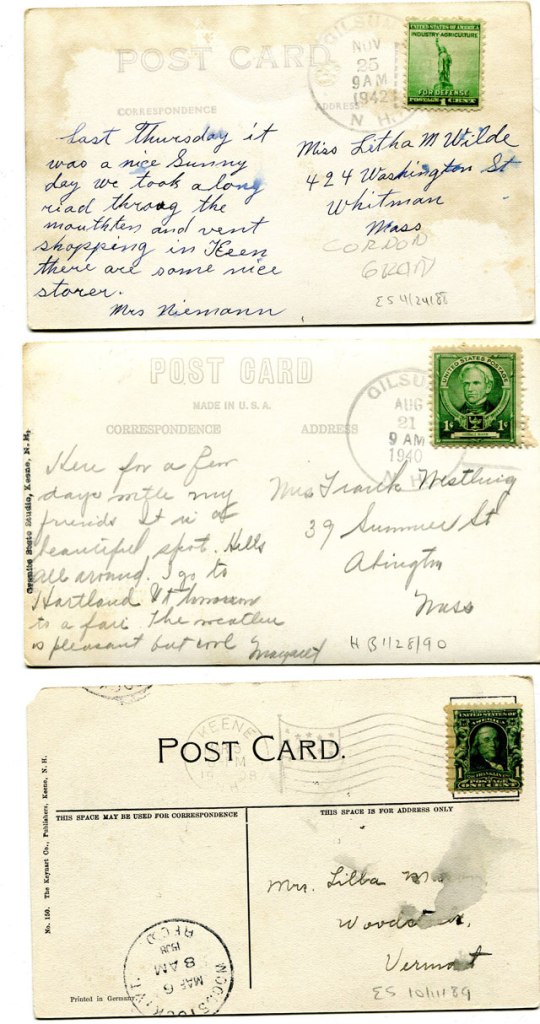 POST CARD
GILSUM
NOV
25
9 AM
1942
N. H.
UNITED STATES OF AMERICA
INDUSTRY AGRICULTURE
FOR DEFENSE
POSTAGE 1 CENT
CORRESPONDENCE
ADDRESS
last Thursday it
was a nice Sunny
day we took a long
riad throug the
mouthten and vent
shopping in Keen
there are some nice
storer.
Mrs Niemann
Miss Letha M Wilde
424 Washington St
Whitman
Mass
CORDON
ES 4/24/88
POST CARD
MADE IN U.S.A.
CORRESPONDENCE
ADDRESS
GILSU
AUG
21
9 AM
1940
N. H.
UNITED STATES POSTAGE
1¢ 1¢
HORACE MANN
Granite State Studio, Keene, N. H.
Here for a few
days with my
friends It is a
beautiful spot. Hills
all around. I go to
Hartland Vt tomorrow
to a fair. The weather
is pleasant but cool
Margaret
Mrs Frank Westling
39 Summer St
Abington
Mass
HB 1/28/90
KEENE
POST CARD.
UNITED STATES OF AMERICA
FRANKLIN
POSTAGE
ONE CENT
THIS SPACE MAY BE USED FOR CORRESPONDENCE
THIS SPACE IS FOR ADDRESS ONLY
No. 150. The Keynart Co., Publishers, Keene, N. H.
Mrs. Lilla
Woodstock,
Vermont
WOODSTOCK, VT.
MAR 6
8 AM
1908
REC'D
Printed in Germany
ES 10/11/89